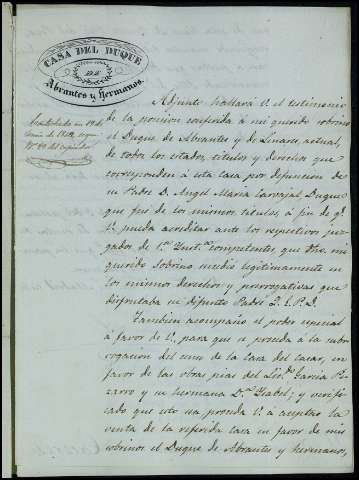 CASA DEL DUQUE
DE
Abrantes y hermanos.
Contestado en 19 de
Nº 40 del registro
Adjunto hallará V. el testimonio
de la posesion conferida á mi querido sobrino
el Duque de Abrantes y de Linares actual,
de todos los estados, titulos y derechos que
corresponden á esta casa por defuncion de
su Padre D. Angel Maria Carvajal Duque
que fué de los mismos titulos, á fin de qe.
V. pueda acreditar ante los respectivos juz-
gados de 1ª Instª competentes, que dho. mi
querido Sobrino medio legitimamente en
los mismos derechos y prerrogativas que
disfrutaba su difunto Padre Q. E. P. D.
Tambien acompaño el poder especial
á favor de V. para que se proceda á la subr-
rogacion del censo de la Casa del casar, en
favor de las obras pias del Licdo. Garcia Pi-
zarro y su hermana Dª Ysabel; y verifi-
cado que esto sea proceda V. á aceptar la
venta de la referida casa en favor de mis
sobrinos el Duque de Abrantes y hermanos,